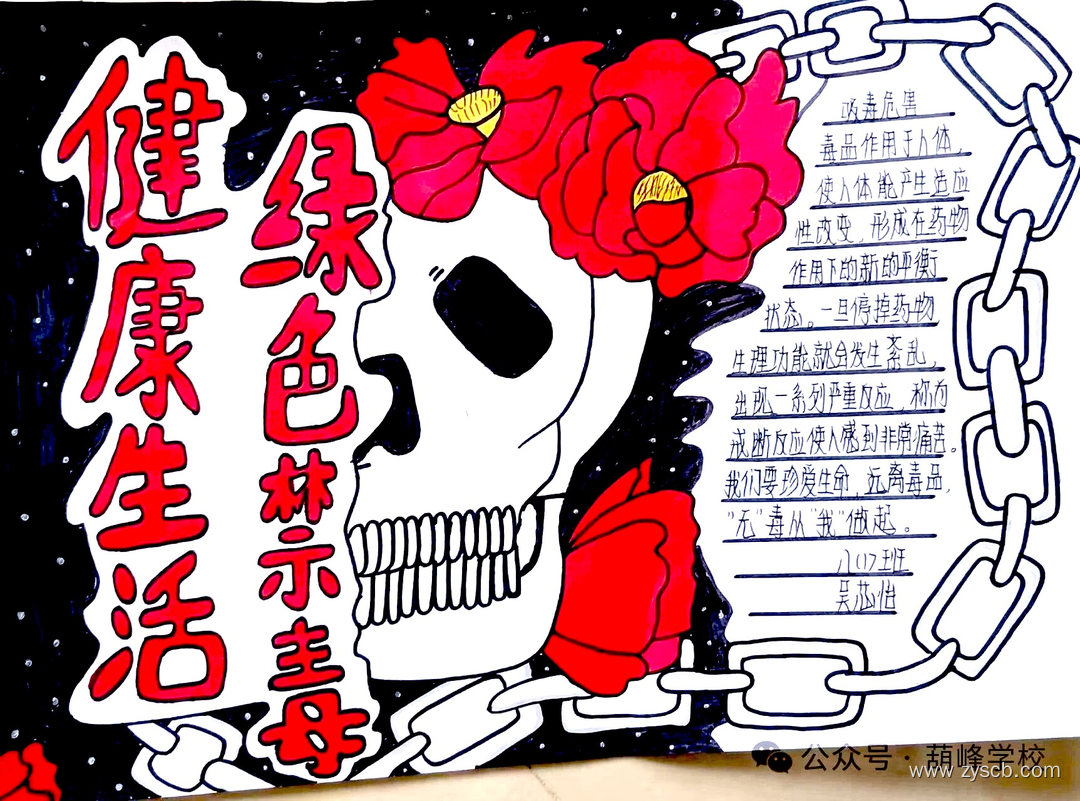 健康生活
绿色禁毒
吸毒危害
毒品作用于人体,
使人体能产生适应
性改变,形成在药物
作用下的新的平衡
状态。一旦停掉药物
生理功能就会发生紊乱,
出现一系列严重反应,称为
戒断反应使人感到非常痛苦。
我们要珍爱生命,远离毒品,
"无"毒从"我"做起。
八(17)班
吴莎怡
公众号·葫峰学校
www.zyscb.com